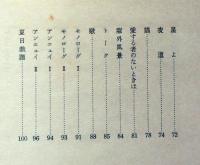 星よ……72
夜道……74
猫……78
愛する者のないときは……81
窓外風景……84
トーク……85
獣……88
モノローグⅠ……91
モノローグⅡ……93
アンニュイⅠ……94
アンニュイⅡ……96
夏日戯画……100